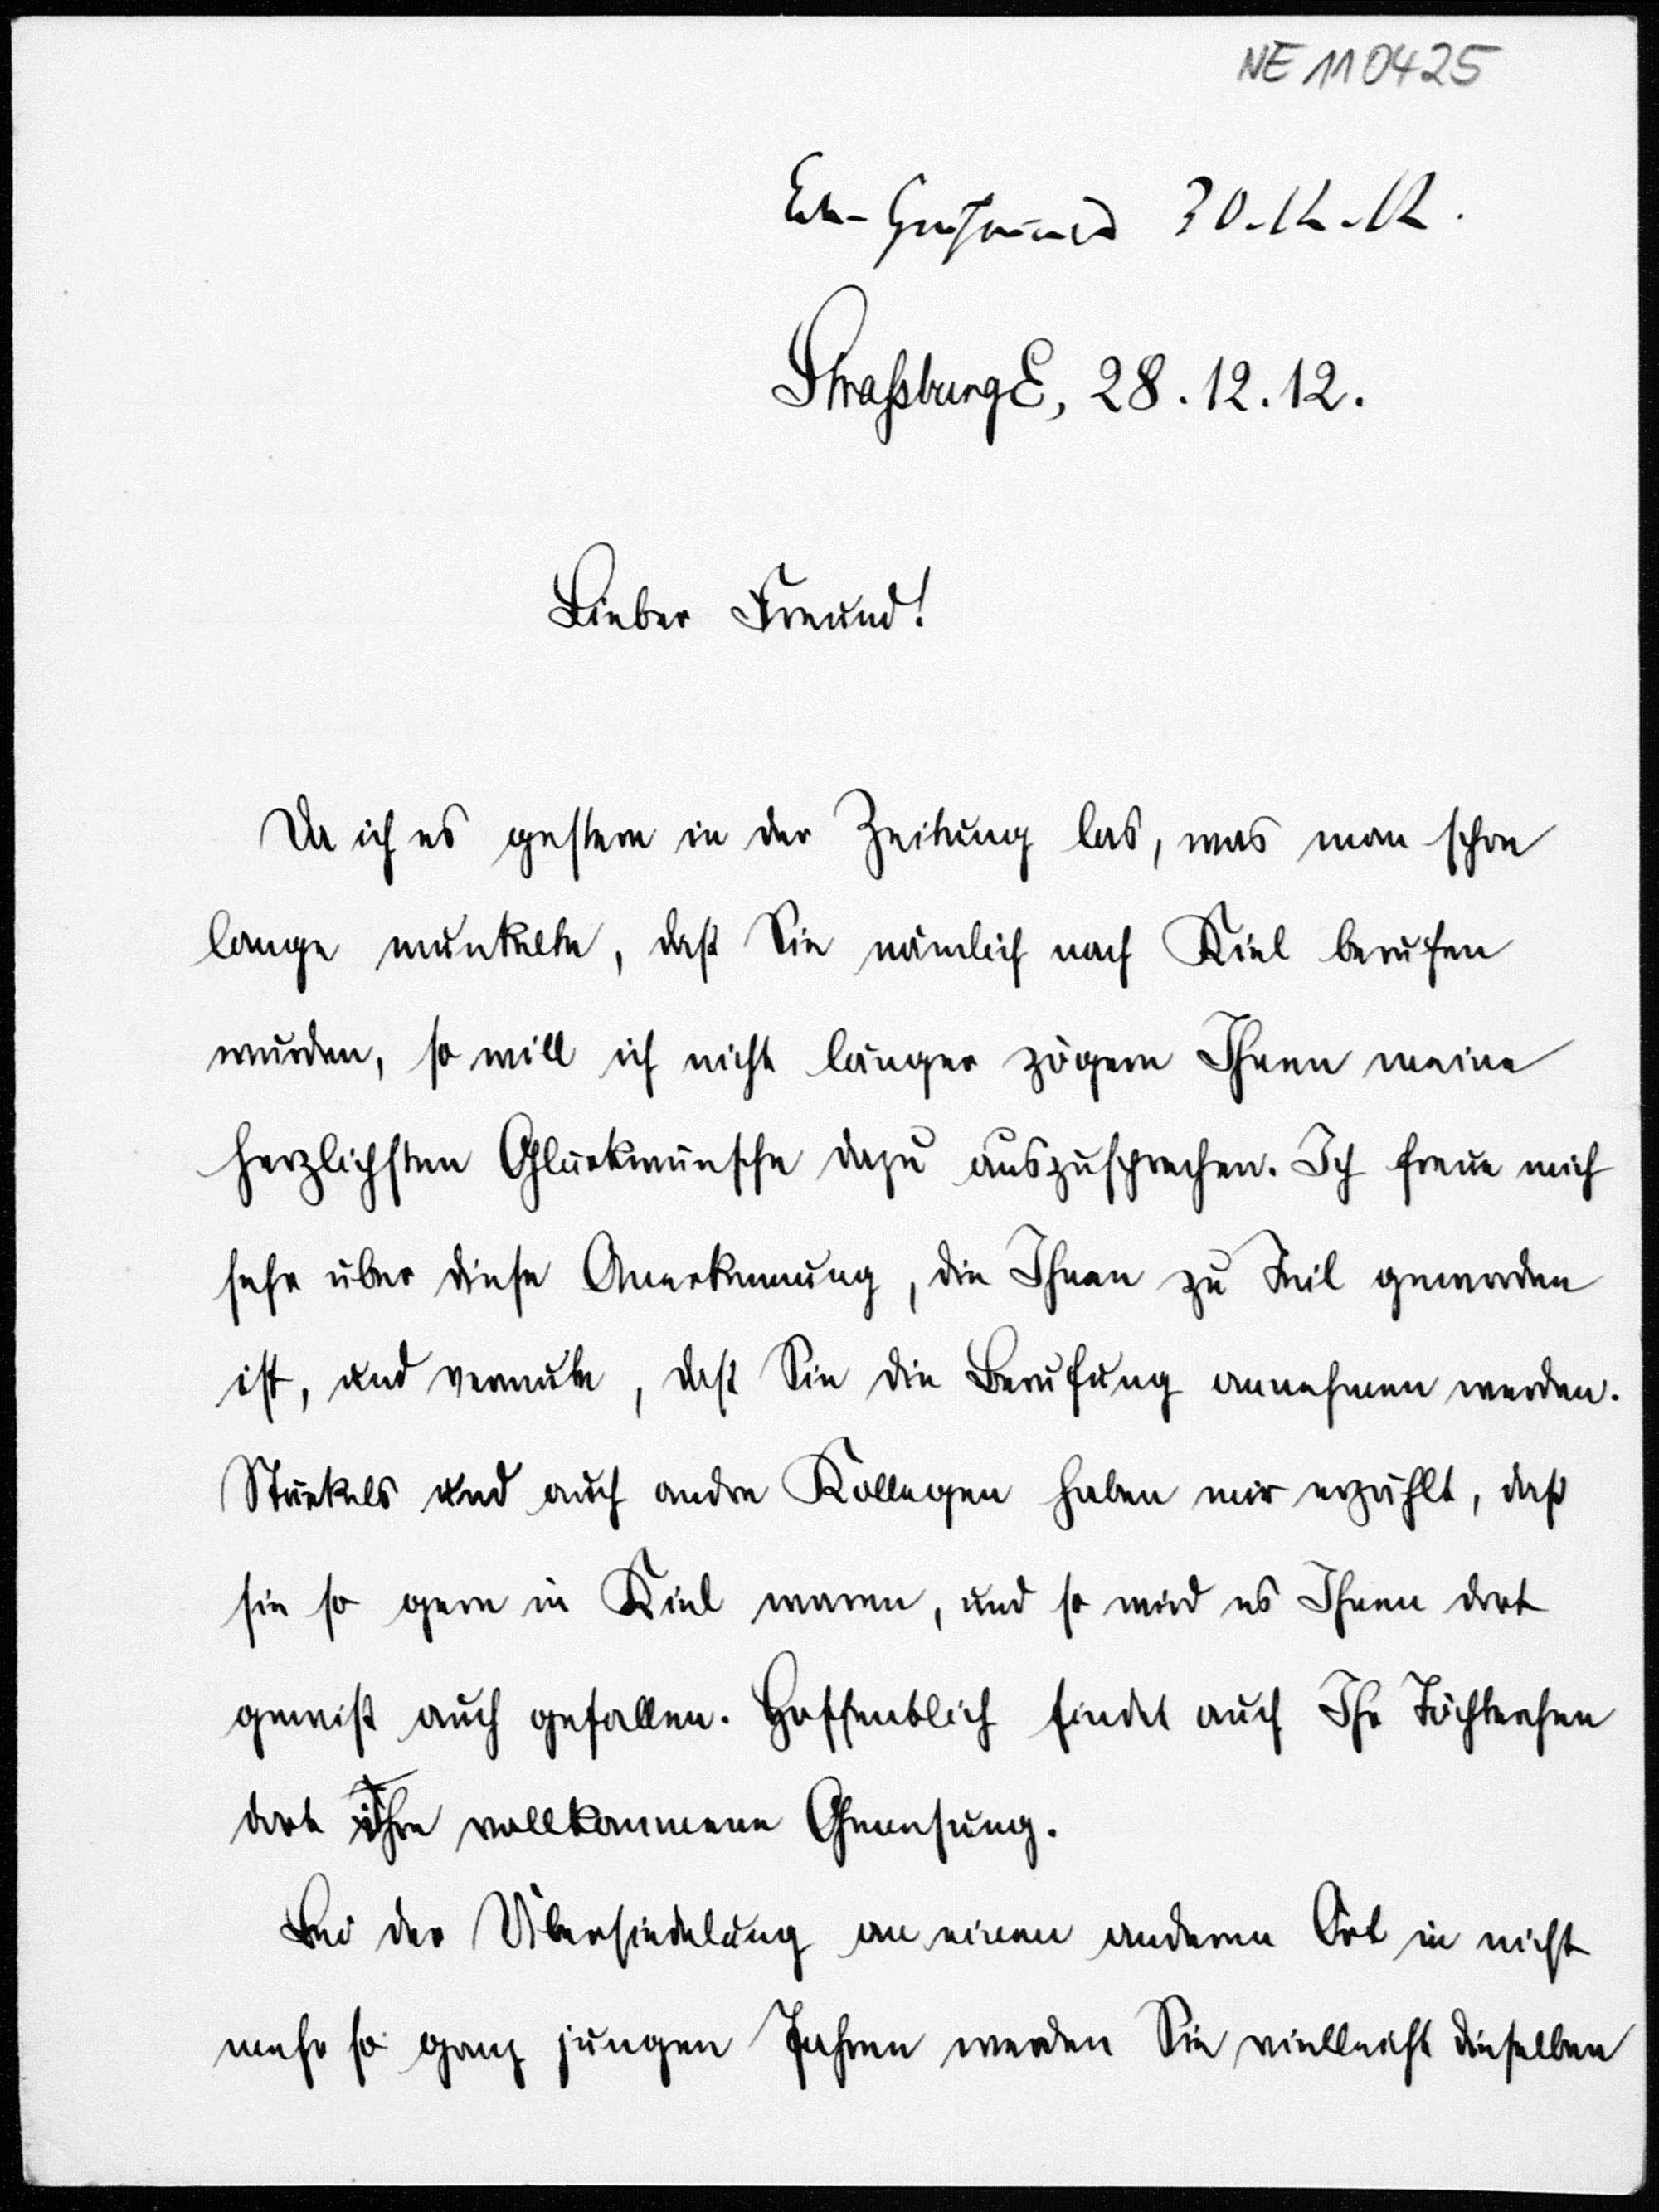 NE 110425
30.12.12.
Strassburg E, 28.12.12.
Lieber Freund!
Da ich es gestern in der Zeitung las, was man schon
lange munkelte, daß Sie nämlich nach Kiel berufen
wurden, so will ich nicht länger zögern Ihnen meine
herzlichsten Glückwünsche dazu auszusprechen. Ich freue mich
sehr über diese Anerkennung, die Ihnen zu Teil geworden
ist, und vermute, daß Sie die Berufung annehmen werden.
Stöckels und auch andre Kollegen haben mir erzählt, daß
sie so gern in Kiel waren, und so wird es Ihnen dort
gewiß auch gefallen. Hoffentlich findet auch Ihr Töchterchen
dort ihre vollkommene Genesung.
Bei der Übersiedelung an einen anderen Ort in nicht
mehr so ganz jungen Jahren werden Sie vielleicht dieselben